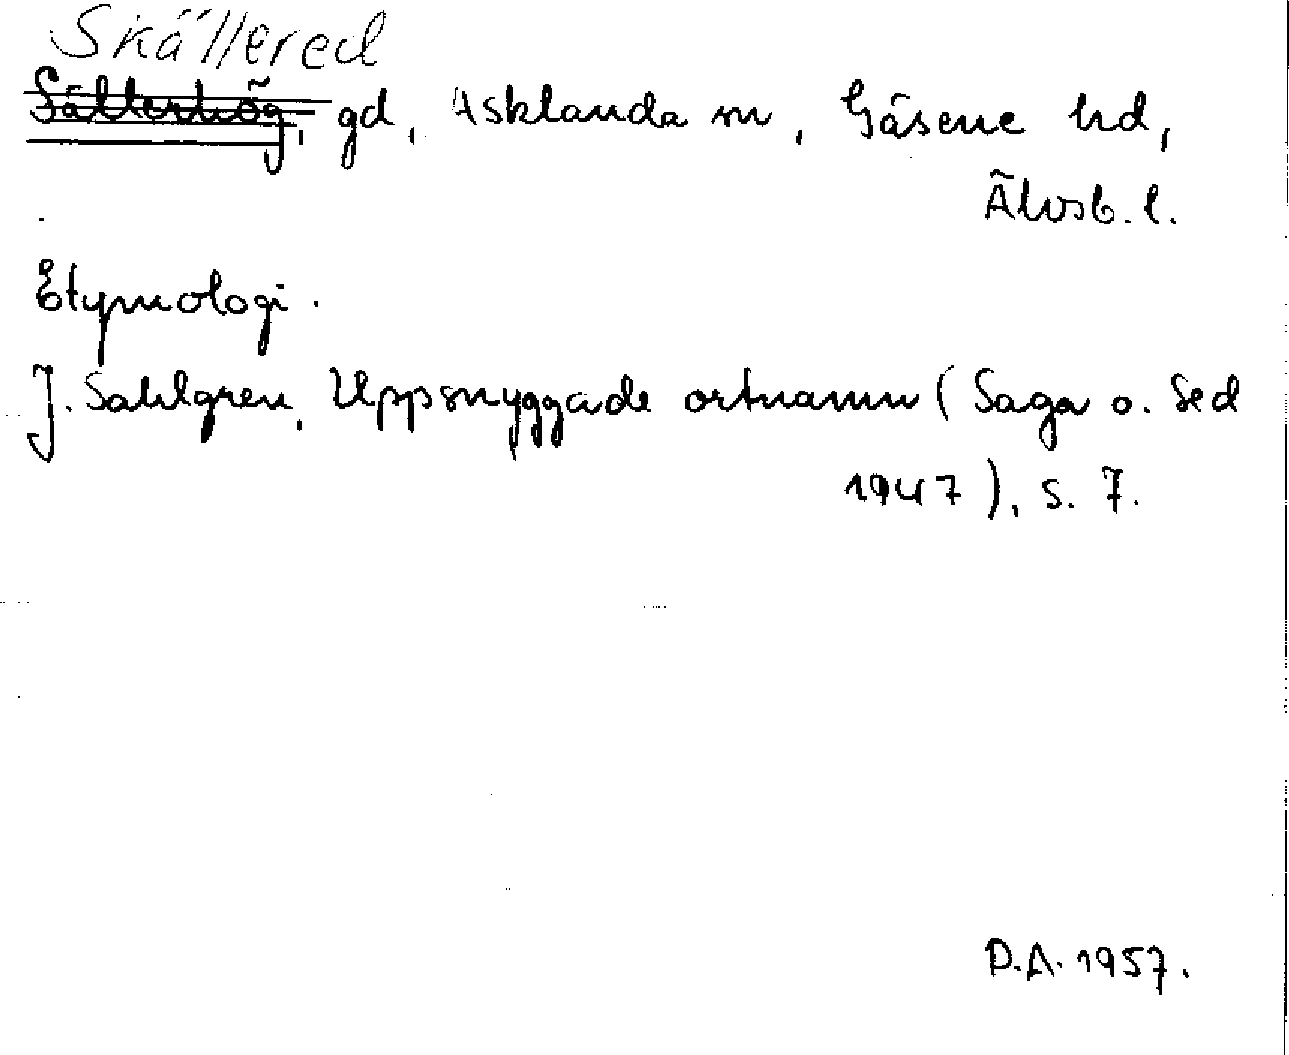 Skällered
Sälterhög, gd, Asklanda sn, Gäsene hd,
Älvsb. l.
Etymologi.
J. Sahlgren, Uppsnyggade ortnamn (Saga o. Sed
1947), s. 7.
D.A. 1957.